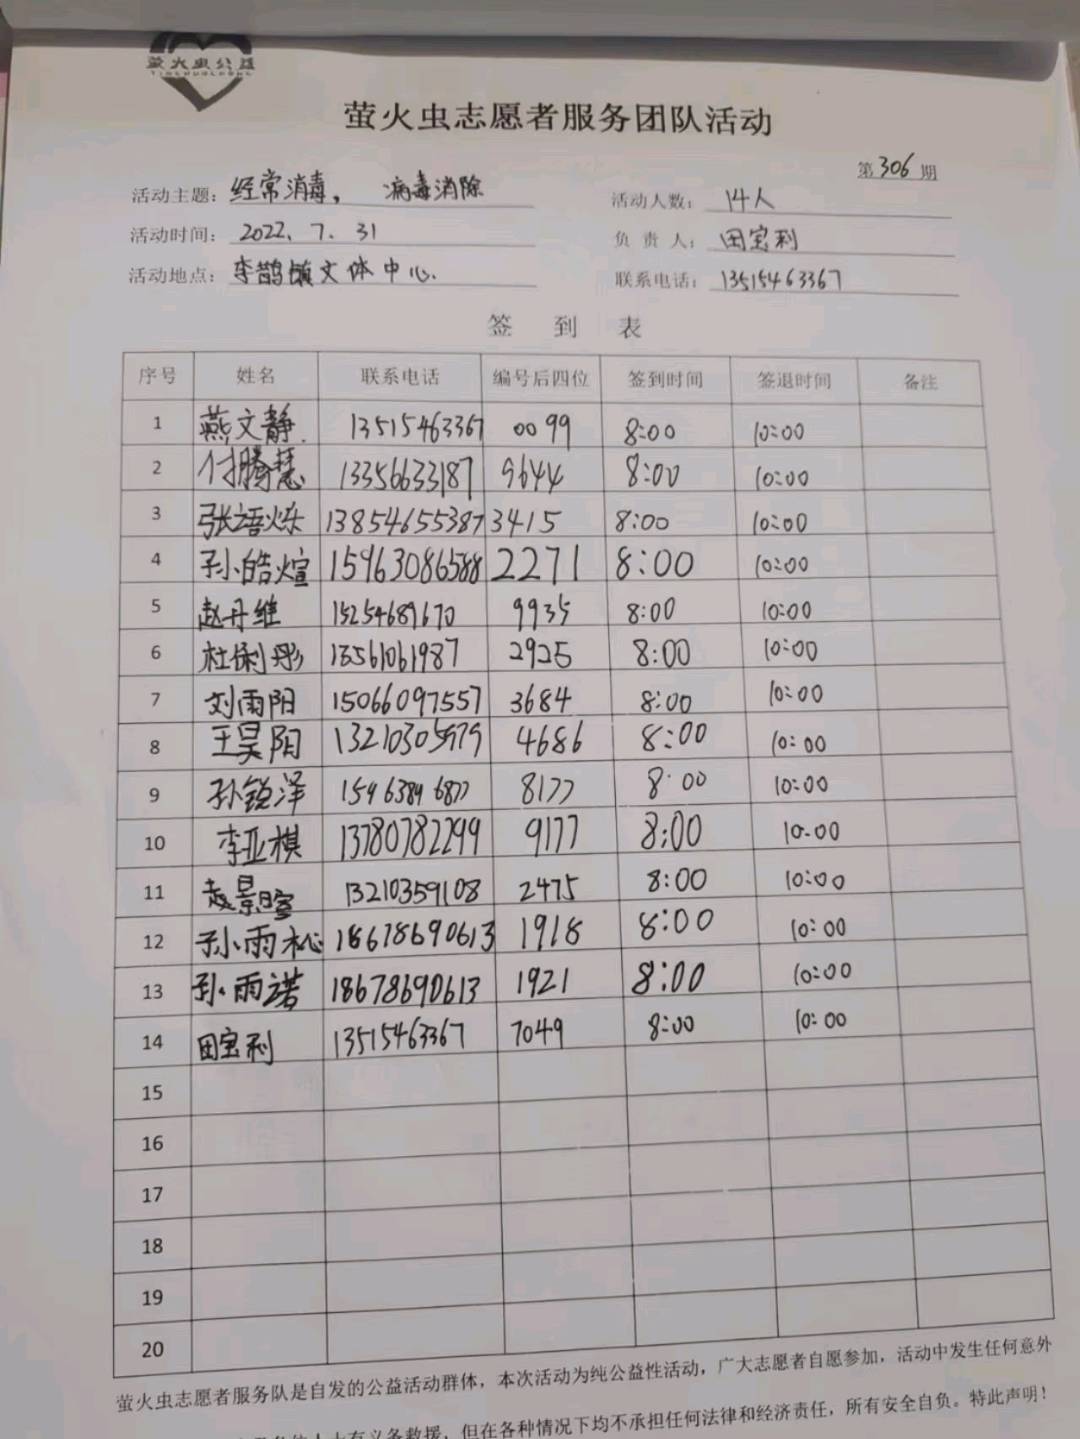 萤火虫公益
萤火虫志愿者服务团队活动
第306期
活动主题：经常消毒，病毒消除 活动人数：14人
活动时间：2022、7、31 负责人：田宝利
活动地点：李鹊镇文体中心. 联系电话：13515463367
签到表
序号 姓名 联系电话 编号后四位 签到时间 签退时间 备注
1 燕文静 13515463367 0099 8:00 10:00
2 付腾慧 13356633187 9644 8:00 10:00
3 张语烁 13854655387 3415 8:00 10:00
4 孙皓煊 15963086588 2271 8:00 10:00
5 赵丹维 15254689670 9935 8:00 10:00
6 杜俐彤 13561061987 2925 8:00 10:00
7 刘雨阳 15066097557 3684 8:00 10:00
8 王昊阳 13210305979 4686 8:00 10:00
9 孙锐泽 15963896877 8177 8:00 10:00
10 李亚棋 13780782299 9177 8:00 10:00
11 赵景暄 13210359108 2475 8:00 10:00
12 孙雨松 18678690613 1918 8:00 10:00
13 孙雨诺 18678690613 1921 8:00 10:00
14 田宝利 13515463367 7049 8:00 10:00
15
16
17
18
19
20
萤火虫志愿者服务队是自发的公益活动群体，本次活动为纯公益性活动，广大志愿者自愿参加，活动中发生任何意外
有义务救援，但在各种情况下均不承担任何法律和经济责任，所有安全自负。特此声明！